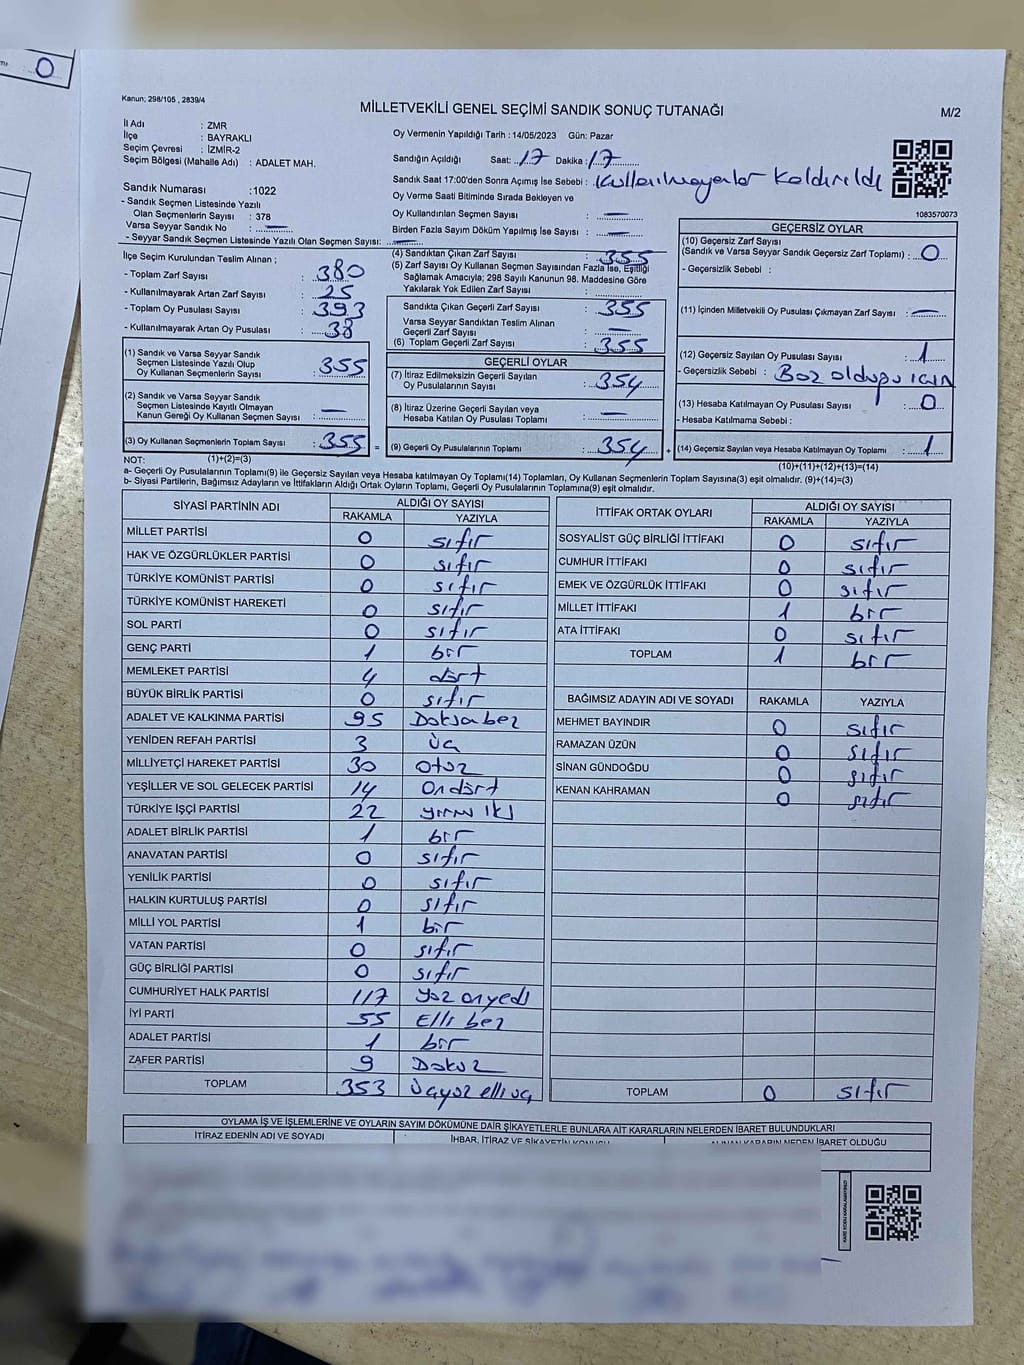 0
Kanun; 298/105 , 2839/4
MİLLETVEKİLİ GENEL SEÇİMİ SANDIK SONUÇ TUTANAĞI
M/2
İl Adı : ZMR
İlçe : BAYRAKLI
Seçim Çevresi : İZMİR-2
Seçim Bölgesi (Mahalle Adı) : ADALET MAH.
Oy Vermenin Yapıldığı Tarih : 14/05/2023 Gün: Pazar
Sandığın Açıldığı Saat: 17 Dakika : 17
Sandık Saat 17:00'den Sonra Açımış İse Sebebi : Kullanılmayanlar Kaldırıldı
Oy Verme Saati Bitiminde Sırada Bekleyen ve
Oy Kullandırılan Seçmen Sayısı : —
Birden Fazla Sayım Döküm Yapılmış İse Sayısı : —
1083570073
Sandık Numarası :1022
- Sandık Seçmen Listesinde Yazılı
Olan Seçmenlerin Sayısı : 378
Varsa Seyyar Sandık No : —
- Seyyar Sandık Seçmen Listesinde Yazılı Olan Seçmen Sayısı: —
İlçe Seçim Kurulundan Teslim Alınan ;
- Toplam Zarf Sayısı : 380
- Kullanılmayarak Artan Zarf Sayısı : 25
- Toplam Oy Pusulası Sayısı : 393
- Kullanılmayarak Artan Oy Pusulası : 38
(1) Sandık ve Varsa Seyyar Sandık
Seçmen Listesinde Yazılı Olup
Oy Kullanan Seçmenlerin Sayısı : 355
(2) Sandık ve Varsa Seyyar Sandık
Seçmen Listesinde Kayıtlı Olmayan
Kanun Gereği Oy Kullanan Seçmen Sayısı : —
(3) Oy Kullanan Seçmenlerin Toplam Sayısı : 355 =
(4) Sandıktan Çıkan Zarf Sayısı : 355
(5) Zarf Sayısı Oy Kullanan Seçmen Sayısından Fazla İse, Eşitliği
Sağlamak Amacıyla; 298 Sayılı Kanunun 98. Maddesine Göre
Yakılarak Yok Edilen Zarf Sayısı :
Sandıkta Çıkan Geçerli Zarf Sayısı : 355
Varsa Seyyar Sandıktan Teslim Alınan
Geçerli Zarf Sayısı : —
(6) Toplam Geçerli Zarf Sayısı : 355
GEÇERLİ OYLAR
(7) İtiraz Edilmeksizin Geçerli Sayılan
Oy Pusulalarının Sayısı : 354
(8) İtiraz Üzerine Geçerli Sayılan veya
Hesaba Katılan Oy Pusulası Toplamı : —
(9) Geçerli Oy Pusulalarının Toplamı : 354 +
GEÇERSİZ OYLAR
(10) Geçersiz Zarf Sayısı
(Sandık ve Varsa Seyyar Sandık Geçersiz Zarf Toplamı) : 0
- Geçersizlik Sebebi :
(11) İçinden Milletvekili Oy Pusulası Çıkmayan Zarf Sayısı : —
(12) Geçersiz Sayılan Oy Pusulası Sayısı : 1
- Geçersizlik Sebebi : Boz olduğu için
(13) Hesaba Katılmayan Oy Pusulası Sayısı : 0
- Hesaba Katılmama Sebebi :
(14) Geçersiz Sayılan veya Hesaba Katılmayan Oy Toplamı : 1
NOT: (1)+(2)=(3)
(10)+(11)+(12)+(13)=(14)
a- Geçerli Oy Pusulalarının Toplamı(9) ile Geçersiz Sayılan veya Hesaba katılmayan Oy Toplamı(14) Toplamları, Oy Kullanan Seçmenlerin Toplam Sayısına(3) eşit olmalıdır. (9)+(14)=(3)
b- Siyasi Partilerin, Bağımsız Adayların ve İttifakların Aldığı Ortak Oyların Toplamı, Geçerli Oy Pusulalarının Toplamına(9) eşit olmalıdır.
SİYASİ PARTİNİN ADI ALDIĞI OY SAYISI
RAKAMLA YAZIYLA
MİLLET PARTİSİ 0 sıfır
HAK VE ÖZGÜRLÜKLER PARTİSİ 0 sıfır
TÜRKİYE KOMÜNİST PARTİSİ 0 sıfır
TÜRKİYE KOMÜNİST HAREKETİ 0 sıfır
SOL PARTİ 0 sıfır
GENÇ PARTİ 1 bir
MEMLEKET PARTİSİ 4 dört
BÜYÜK BİRLİK PARTİSİ 0 sıfır
ADALET VE KALKINMA PARTİSİ 95 Doksanbeş
YENİDEN REFAH PARTİSİ 3 üç
MİLLİYETÇİ HAREKET PARTİSİ 30 Otuz
YEŞİLLER VE SOL GELECEK PARTİSİ 14 Ondört
TÜRKİYE İŞÇİ PARTİSİ 22 yirmi iki
ADALET BİRLİK PARTİSİ 1 bir
ANAVATAN PARTİSİ 0 sıfır
YENİLİK PARTİSİ 0 sıfır
HALKIN KURTULUŞ PARTİSİ 0 sıfır
MİLLİ YOL PARTİSİ 1 bir
VATAN PARTİSİ 0 sıfır
GÜÇ BİRLİĞİ PARTİSİ 0 sıfır
CUMHURİYET HALK PARTİSİ 117 yüz onyedi
İYİ PARTİ 55 Elli beş
ADALET PARTİSİ 1 bir
ZAFER PARTİSİ 9 Dokuz
TOPLAM 353 üçyüz elli üç
İTTİFAK ORTAK OYLARI ALDIĞI OY SAYISI
RAKAMLA YAZIYLA
SOSYALİST GÜÇ BİRLİĞİ İTTİFAKI 0 sıfır
CUMHUR İTTİFAKI 0 sıfır
EMEK VE ÖZGÜRLÜK İTTİFAKI 0 sıfır
MİLLET İTTİFAKI 1 bir
ATA İTTİFAKI 0 sıfır
TOPLAM 1 bir
BAĞIMSIZ ADAYIN ADI VE SOYADI RAKAMLA YAZIYLA
MEHMET BAYINDIR 0 sıfır
RAMAZAN ÜZÜN 0 sıfır
SİNAN GÜNDOĞDU 0 sıfır
KENAN KAHRAMAN 0 sıfır
TOPLAM 0 sıfır
OYLAMA İŞ VE İŞLEMLERİNE VE OYLARIN SAYIM DÖKÜMÜNE DAİR ŞİKAYETLERLE BUNLARA AİT KARARLARIN NELERDEN İBARET BULUNDUKLARI
İTİRAZ EDENİN ADI VE SOYADI İHBAR, İTİRAZ VE ŞİKAYETİN KONUSU ALINAN KARARIN NEDEN İBARET OLDUĞU